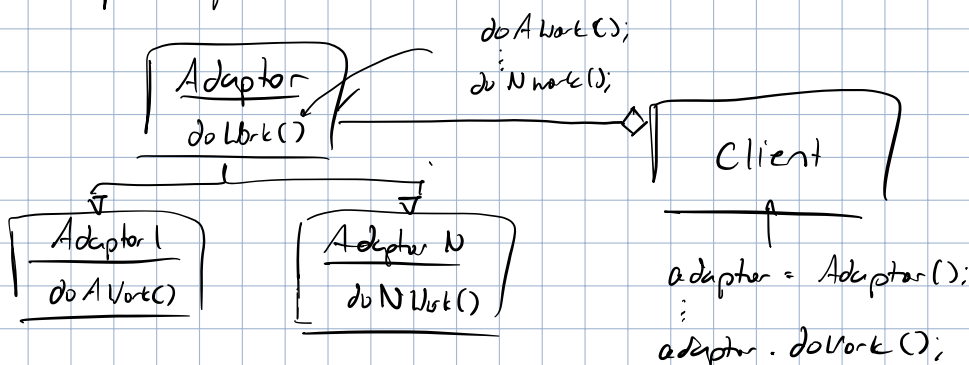 doAWork();
⋮
doNwork();
Adaptor
doWork()
Client
Adaptor 1
doAWork()
Adaptor N
doNWork()
adaptor = Adaptor();
⋮
adaptor.doWork();